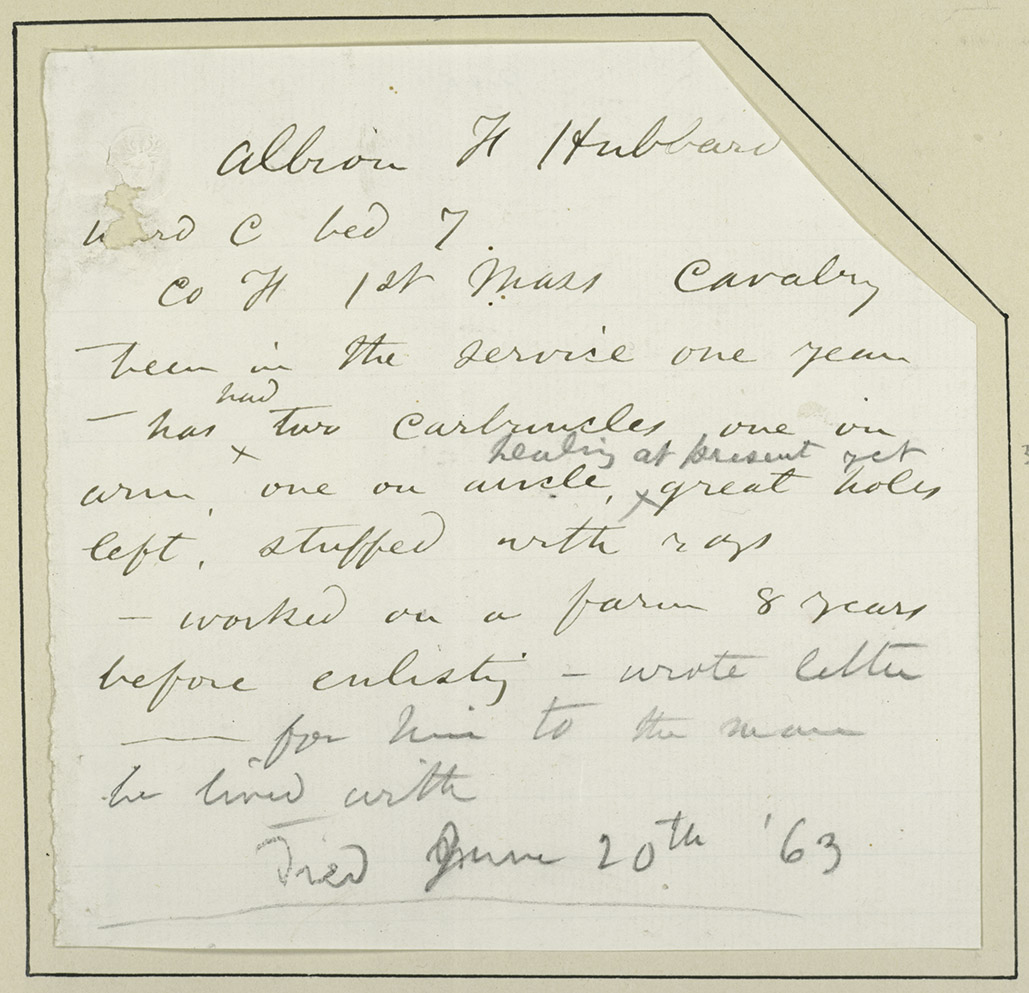 Albion F Hubbard
ward C bed 7
Co F 1st Mass Cavalry
been in the service one year
had
— has two carbuncles one on
healing at present yet
arm, one on ancle, great holes
left, stuffed with rags
— worked on a farm 8 years
before enlisting — wrote letter
—— for him to the man
he lived with
Died June 20th '63